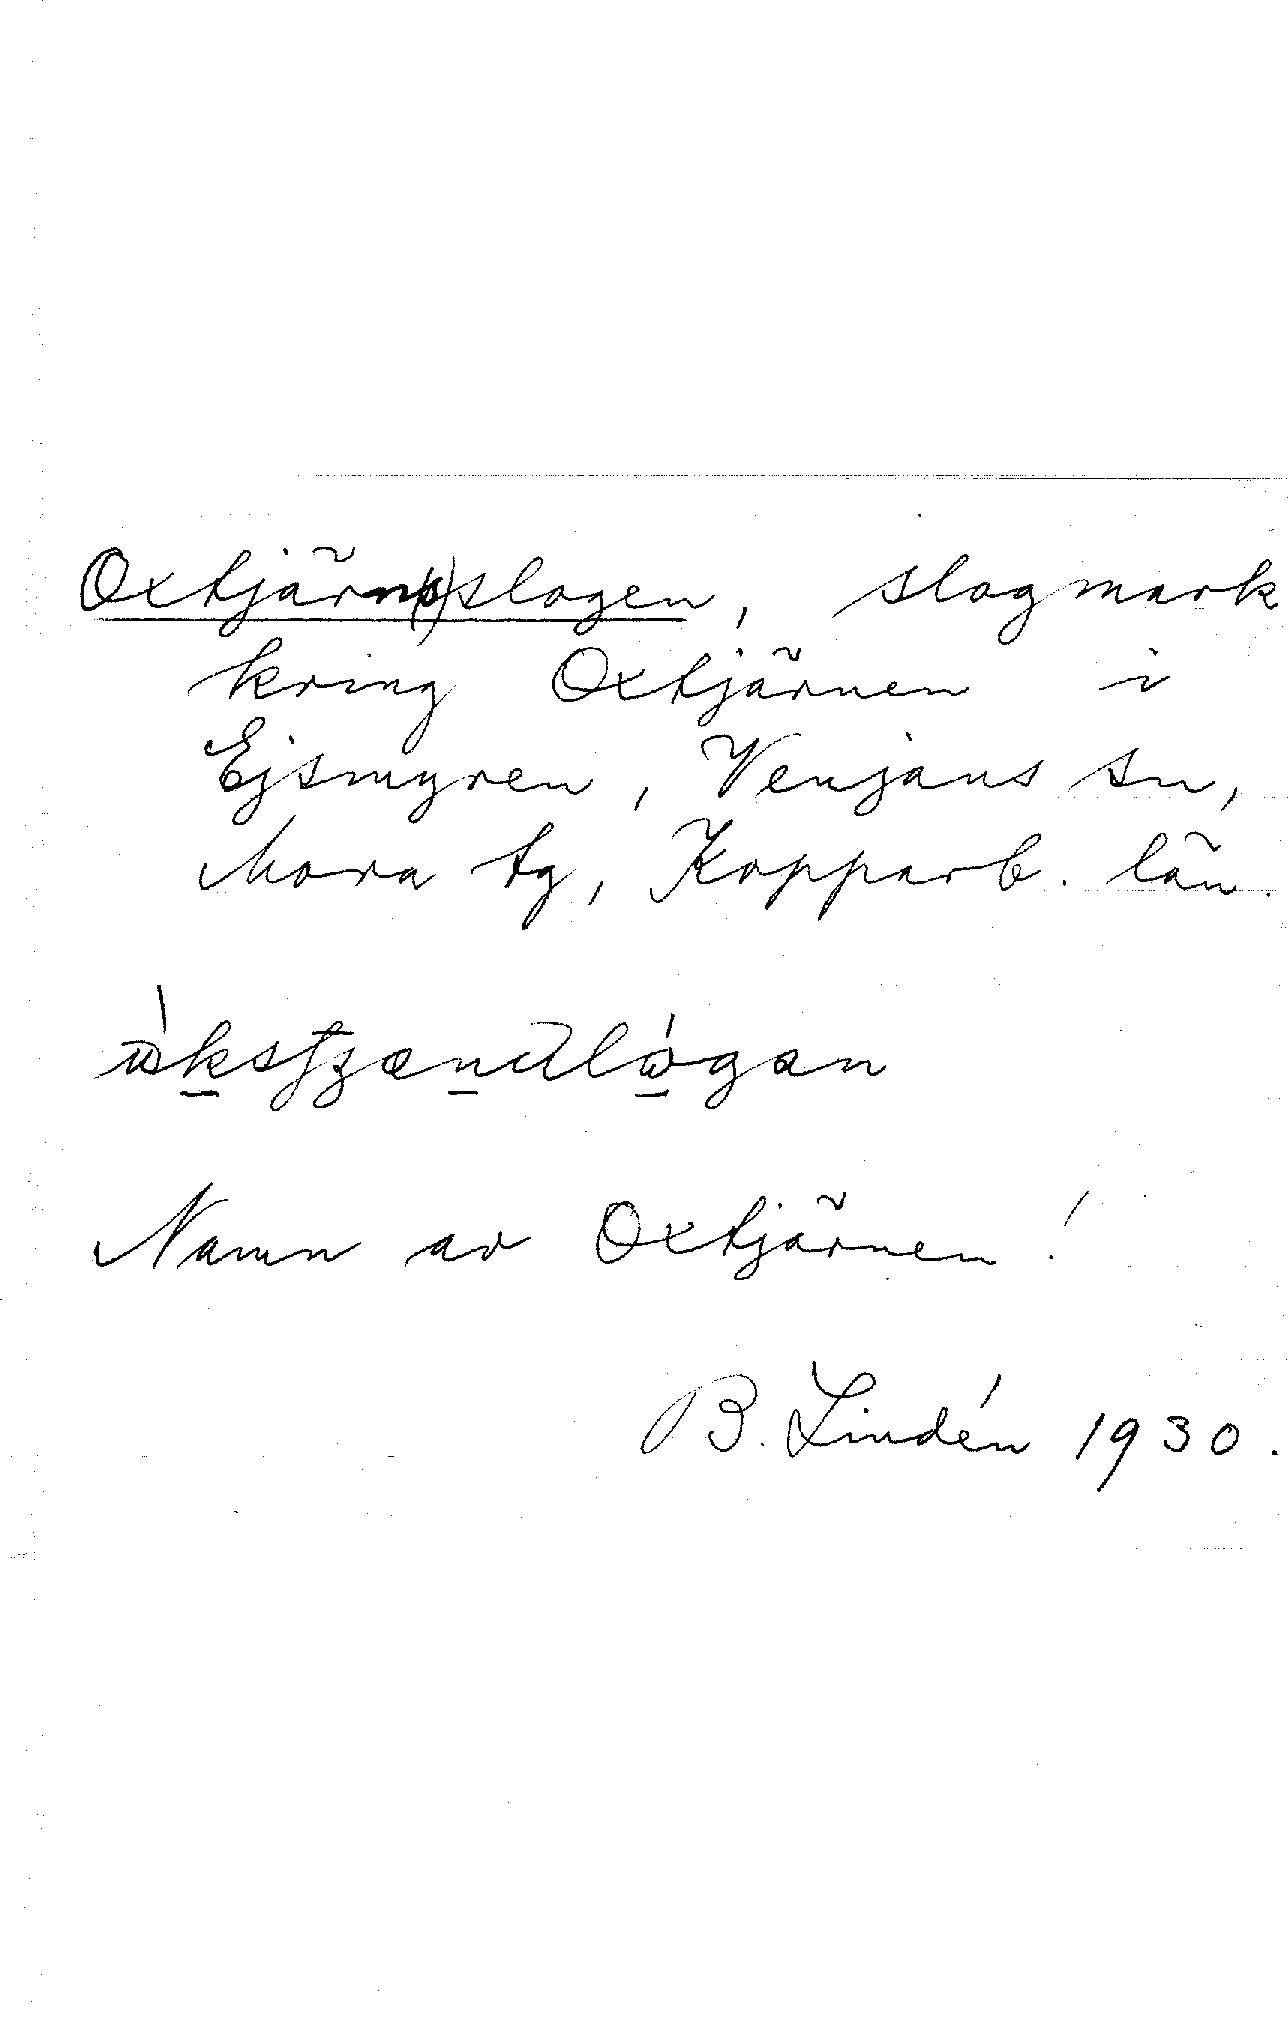 Oxtjärn(s)slogen, slogmark
kring Oxtjärnen i
Ejsmyren, Venjans sn,
Mora tg, Kopparb. län.
Namn av Oxtjärnen!
B. Lindén 1930.